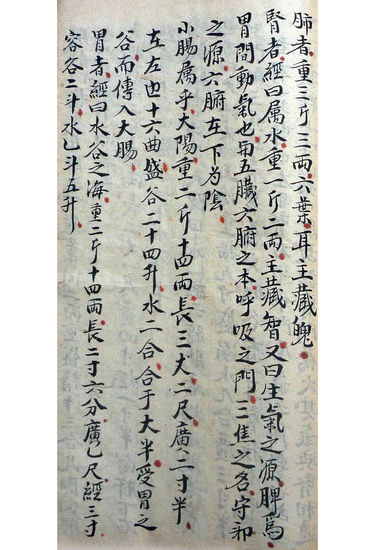 肺者重三斤三兩六葉耳主藏魄
腎者經曰属水重一斤二兩主藏智又曰生氣之源脾爲
胃間動氣也用五臓六腑之本呼吸之門三焦之名守卯
之源六腑在下为陰
小腸属乎大陽重二斤十四兩長三丈二尺廣二寸半
左左迆十六曲盛谷二十四升水二合合于大半受胃之
谷而傳入大腸
胃者經曰水谷之海重二斤十四兩長二寸六分廣乙尺經三寸
容谷二斗水乙斗五升